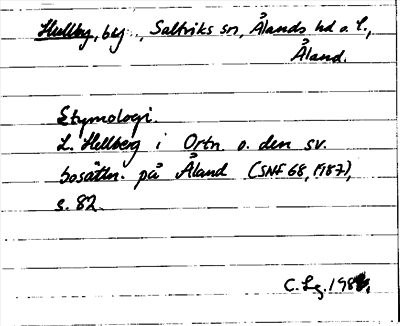 Hullby, by.., Saltviks sn, Ålands hd o. l.,
Åland.
Etymologi.
L. Hellberg i Ortn. o. den sv.
bosättn. på Åland (SNF 68, 1987),
s. 82.
C. Lg.